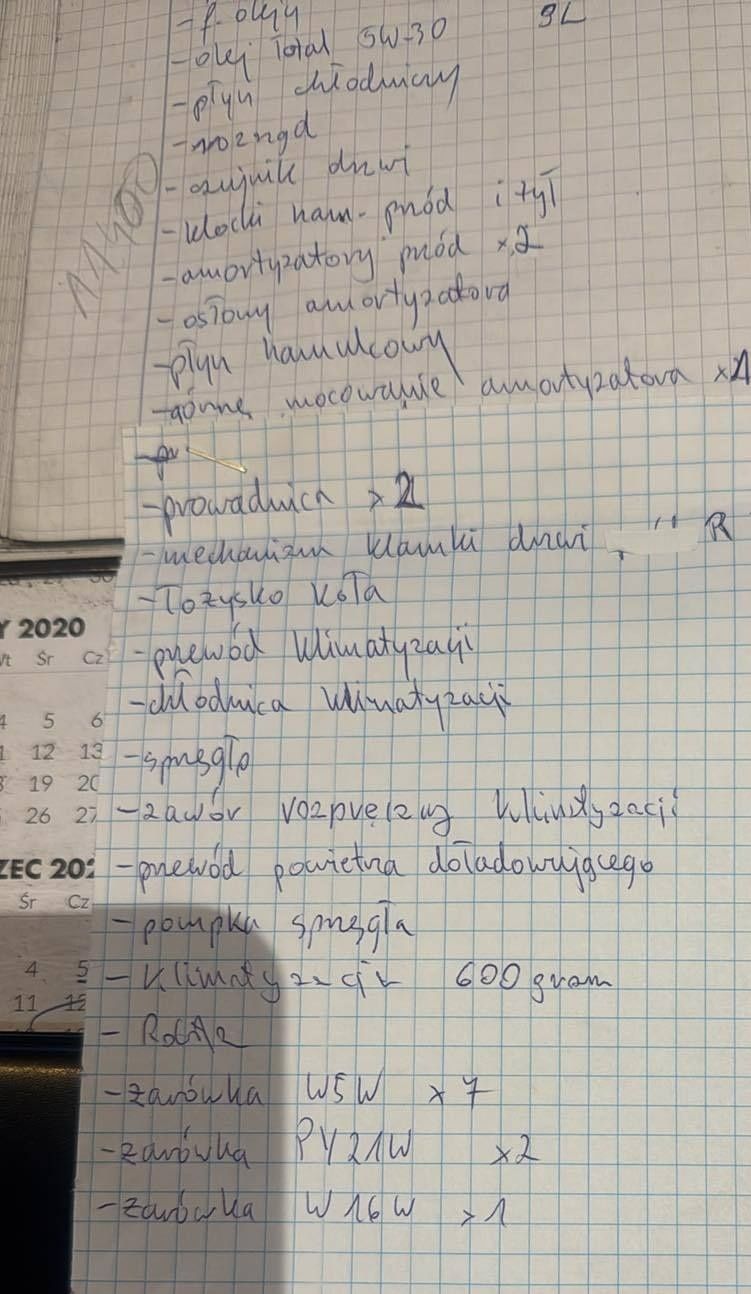 - f. oleju
- olej Total 5W-30 9L
- płyn chłodniczy
- rozrząd
- czujnik drzwi
- klocki ham. przód i tył
- amortyzatory przód x2
- osłony amortyzatora
- płyn hamulcowy
- górne mocowanie amortyzatora x1
11400
- prowadnica x2
- mechanizm klamki drzwi " R
- łożysko koła
- przewód klimatyzacji
- chłodnica klimatyzacji
- sprzęgło
- zawór rozprężny klimatyzacji
- przewód powietrza doładowującego
- pompka sprzęgła
- klimatyzacja 600 gram
-
- żarówka W5W x7
- żarówka PY21W x2
- żarówka W16W x1
Y 2020
Śr Cz
5 6
12 13
19 20
26 27
ZEC 202
Śr Cz
4 5
11 12